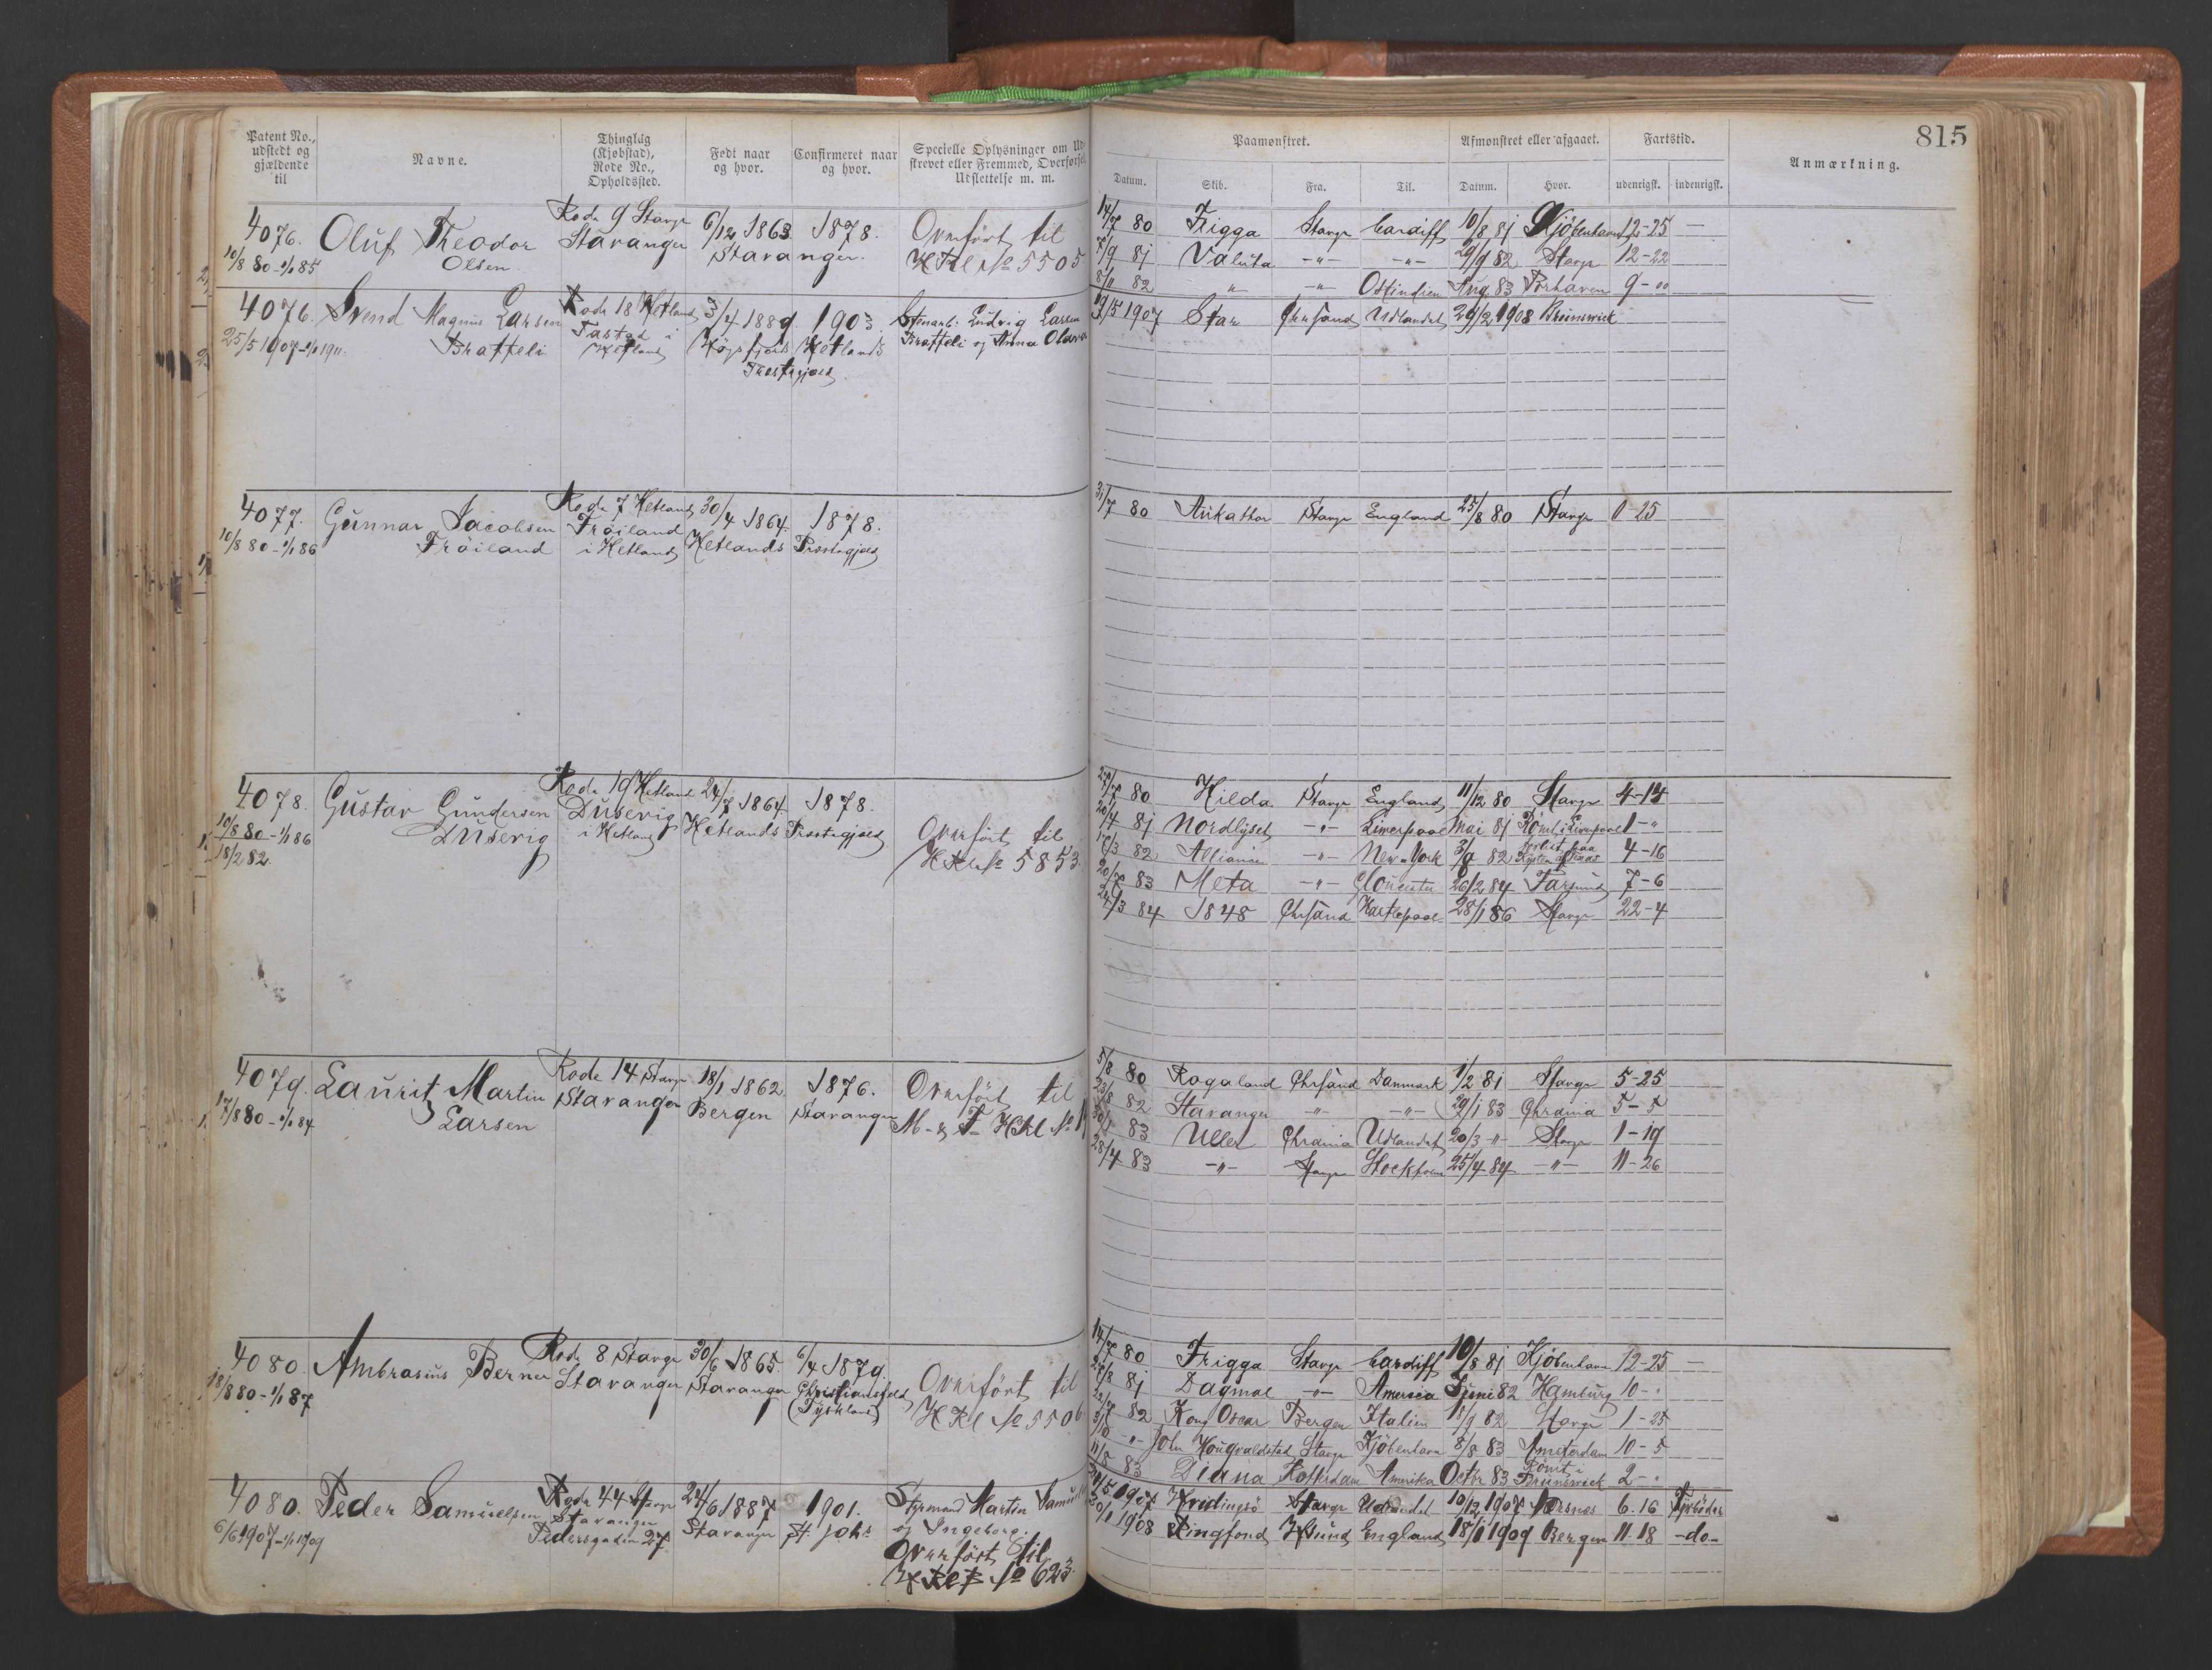 815
Patent No., udstedt og gjældende til
Navne.
Thinglag (Kjøbstad), Rode No., Opholdssted.
Født naar og hvor.
Confirmeret naar og hvor.
Specielle Oplysninger om Ud-
skrevet eller Fremmed, Overførsel,
Udslettelse m. m.
Paamønstret.
Afmønstret eller afgaaet.
Fartstid.
Anmærkning.
Datum. Skib. Fra. Til. Datum. Hvor. udenrigsk. indenrigsk.
4076. Oluf Theodor Rode 9 Stavgr 6/12 1863. 1878. Overført til
10/8 80 - 1/1 85 Olsen. Stavanger Stavanger. HKl No 5505
14/7 80 Frigga Stavgr Cardiff 10/8 81 Kjöbenhavn 12-25 —
7/9 81 Valuta -"- -"- 29/9 82 Stavgr 12-22
8/11 82 " -"- Ostindien Aug. 83 9-"
4076. Svend Magnus Larsen Rode 18 Hetland 3/4 1889. 1903. Stenarb. Ludvig Larsen
25/5 1907 - 1/1 1911. Bratteli Tastad i Hetland Høgsfjord Hetlands Bratteli og Anna Olava
Præstegjæld.
19/5 1907 Star Chrsand Udlandet 29/2 1908 Brunswick
4077. Gunnar Jacobsen Rode 7 Hetland 30/4 1864. 1878.
10/8 80 - 1/1 86 Tröiland Tröiland i Hetland Hetlands Præstegjæld
31/7 80 Stavgr England 25/8 80 Stavgr 0-25
4078. Gustav Gundersen Rode 19 Hetland 24/7 1864. 1878.
10/8 80 - 1/1 86 Dusevig Dusevig i Hetland Hetlands Præstegjæld Overført til
18/2 82. HKl No 5853.
80 Hilda Stavgr England 11/12 80 Stavgr 4-14
20/4 81 Nordlyset -"- Liverpool Mai 81 Römt i Liverpool 1-"
82 Alliance -"- New York 3/8 82 forlist paa Kysten af 4-16
83 Meta -"- Gloucester 26/2 84 Farsund 7-6
24/3 84 1848 Chrsand Hartlepool 28/1 86 Stavgr 22-4
4079. Laurits Martin Rode 14 Stavgr 18/1 1862. 1876. Overført til
17/8 80 - 1/1 84 Larsen Stavanger Bergen Stavanger M- & F- HKl No
5/8 80 Rogaland Chrsand Danmark 1/2 81 Stavgr 5-25
23/8 82 Stavanger -"- -"- 29/1 83 Chrania 5-5
83 Uller Chrania Udlandet 20/3 -"- Stavgr 1-19
28/4 83 -"- Stavgr Stockholm 25/4 84 -"- 11-26
4080. Ambrosius Berner Rode 8 Stavgr 30/6 1865. 6/4 1879. Overført til
18/8 80 - 1/1 87 Stavanger Stavanger Christiansfeld (Tyskland) HKl No 5506
14/7 80 Frigga Stavgr Cardiff 10/8 81 Kjöbenhavn 12-25 —
81 Dagmar -"- America Juni 82 Hamburg 10-"
82 Kong Oscar Bergen Italien 18/9 82 Stavgr 1-25
-"- John Stavgr Kjöbenhavn 8/8 83 Amsterdam 10-5
11/8 83 Diana Rotterdam Amerika Octbr 83 Römt i Brunswick 2-"
4080. Peder Samuelsen Rode 44 Stavgr 24/6 1887 1901. Styrmand Martin Samuels
6/6 1907 - 1/1 1909 Stavanger Pedersgaden 27. Stavanger St. Johs og Ingeborg.
Overført til
HKl B No 623.
1907 Hvidingsö Stavgr Udlandet 10/12 1907 6.16 Fyrböder
30/1 1908 Ringfond Hsund England 18/1 1909 Bergen 11.18 -do-